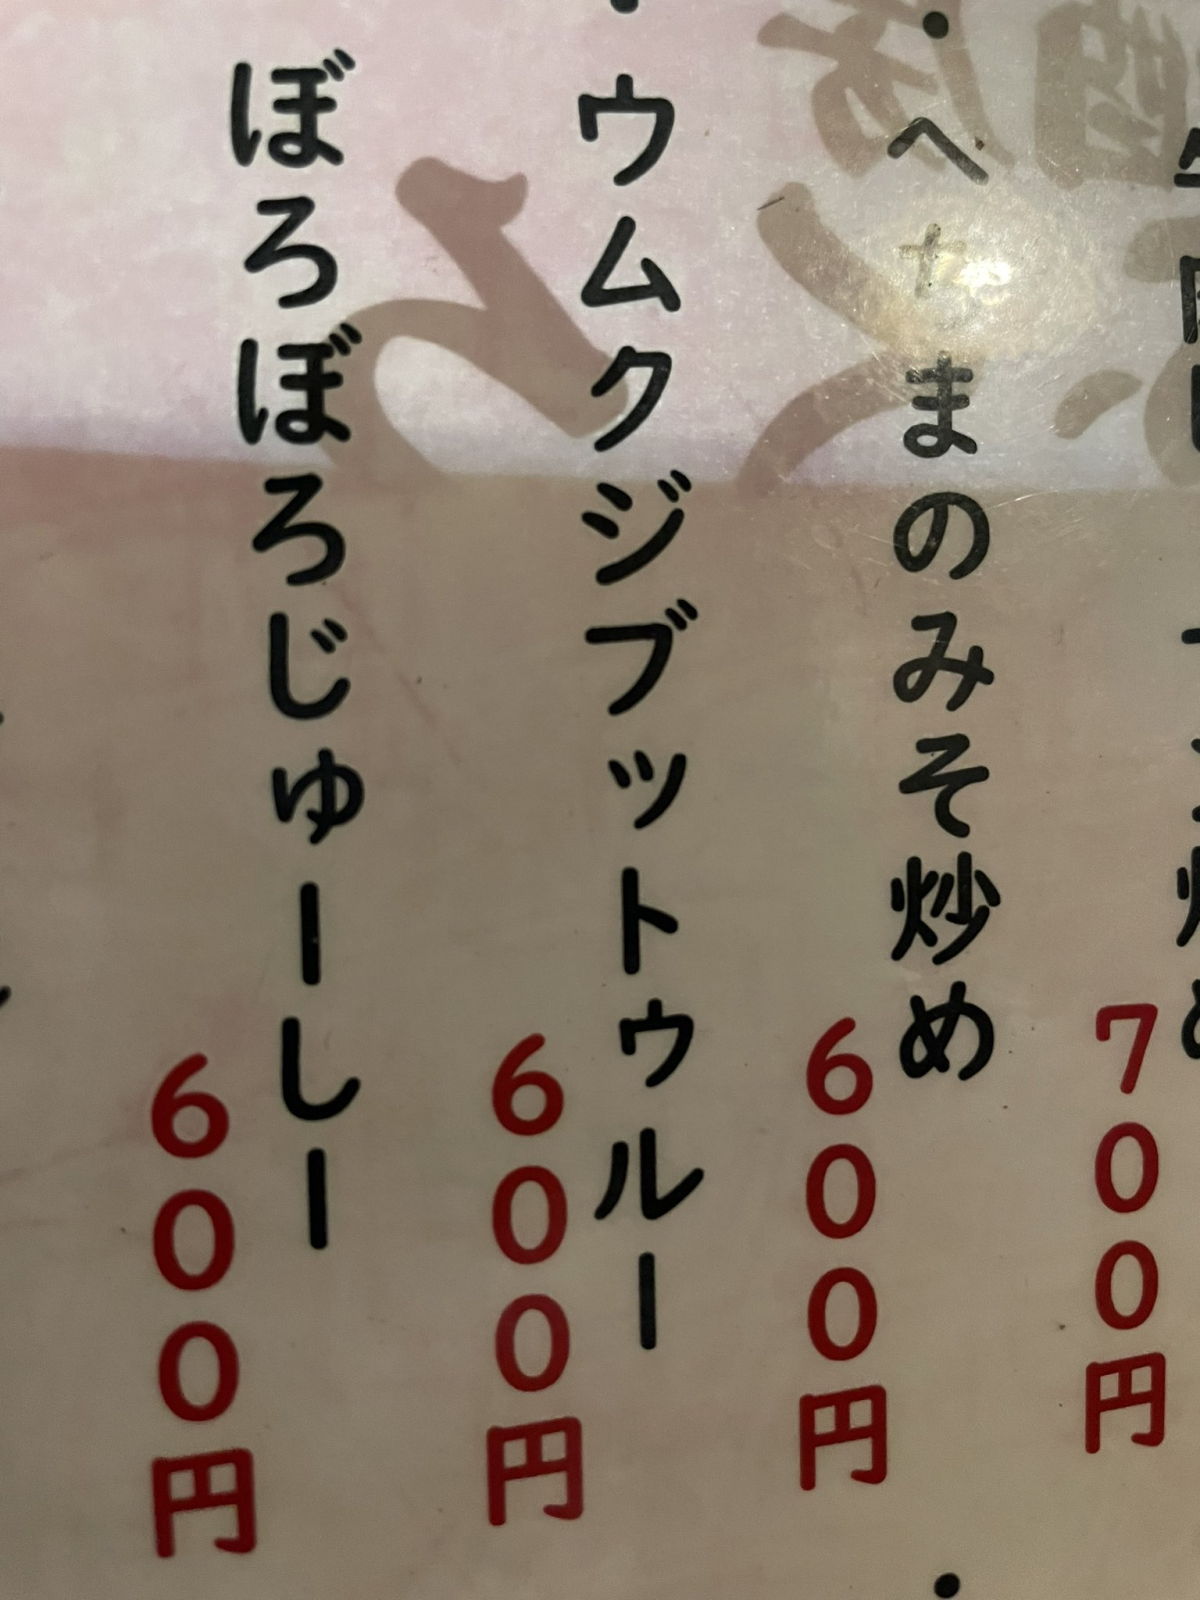 700円
・へちまのみそ炒め
600円
・ウムクジプットゥルー
600円
ぼろぼろじゅーしー
600円